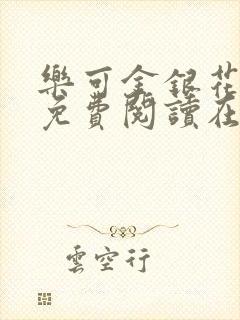 樂可金銀花
免費閱讀在
雲空行